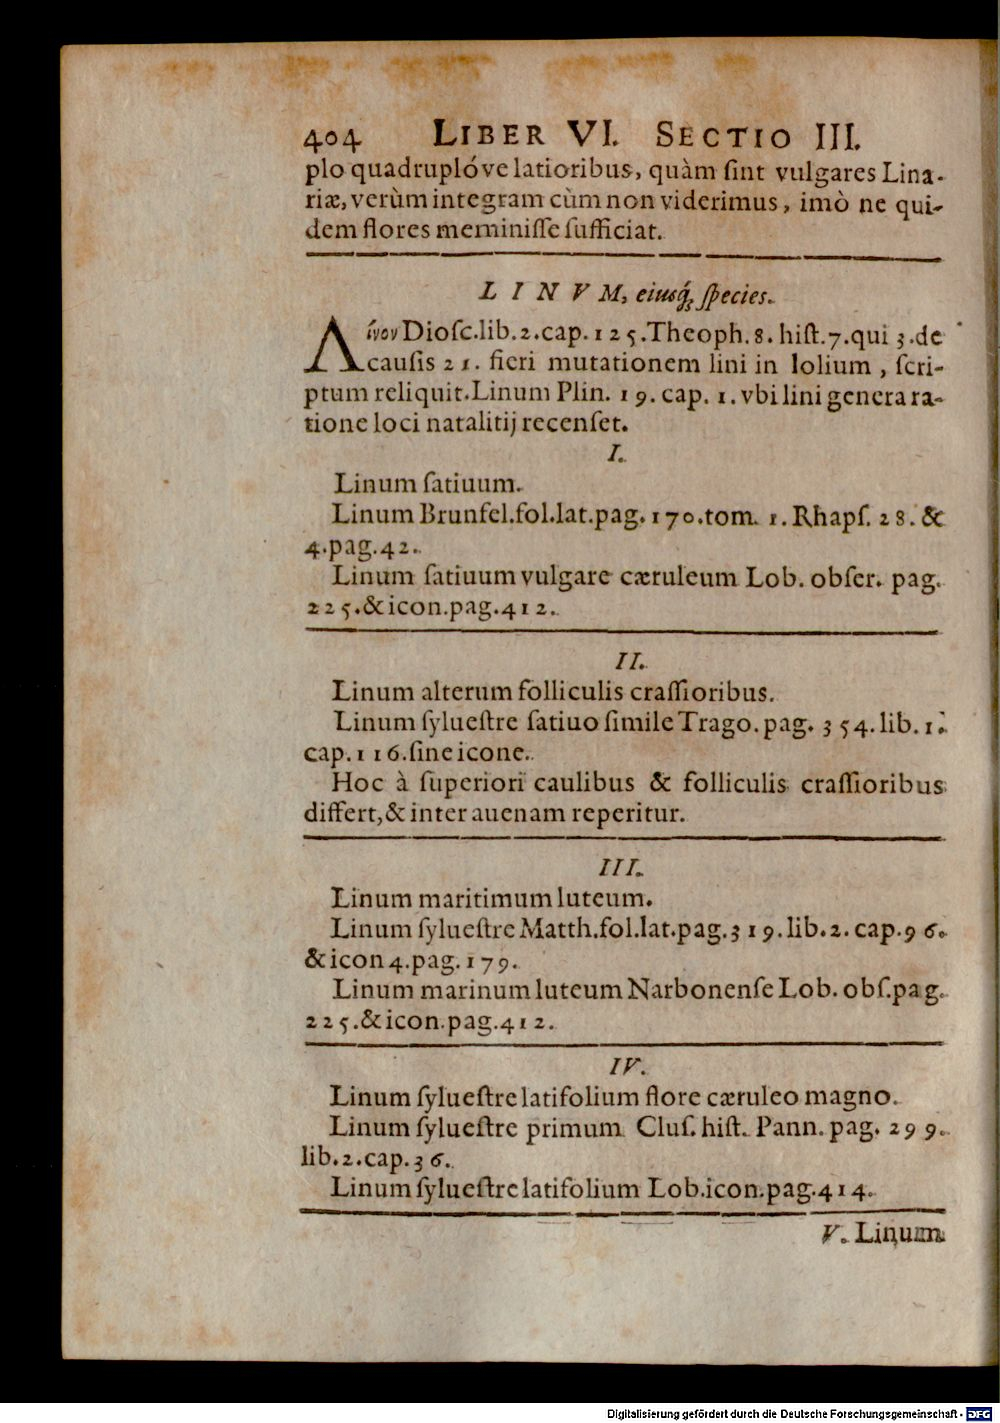 404 LIBER VI. SECTIO III.
plo quadruplóve latioribus, quàm ſint vulgares Lina-
riæ, verùm integram cùm non viderimus, imò ne qui-
dem flores meminiſſe ſufficiat.
LINVM, eiusq́; ſpecies.
Λίνον Dioſc.lib.2.cap.125.Theoph.8. hiſt.7.qui 3.de
cauſis 21. fieri mutationem lini in lolium, ſcri-
ptum reliquit.Linum Plin. 19. cap. 1. vbi lini genera ra-
tione loci natalitij recenſet.
I.
Linum ſatiuum.
Linum Brunfel.fol.lat.pag.170.tom. 1. Rhapſ. 28. &
4.pag.42.
Linum ſatiuum vulgare cæruleum Lob. obſer. pag.
225.& icon.pag.412.
II.
Linum alterum folliculis craſſioribus.
Linum ſylueſtre ſatiuo ſimile Trago. pag. 354. lib. 1.
cap.116.ſine icone.
Hoc à ſuperiori caulibus & folliculis craſſioribus
differt,& inter auenam reperitur.
III.
Linum maritimum luteum.
Linum ſylueſtre Matth.fol.lat.pag.319.lib.2.cap.96.
& icon 4.pag.179.
Linum marinum luteum Narbonenſe Lob. obſ.pag.
225.& icon.pag.412.
IV.
Linum ſylueſtre latifolium flore cæruleo magno.
Linum ſylueſtre primum Cluſ. hiſt. Pann. pag. 299.
lib.2.cap.36.
Linum ſylueſtre latifolium Lob.icon.pag.414.
V. Linum
Digitalisierung gefördert durch die Deutsche Forschungsgemeinschaft - DFG